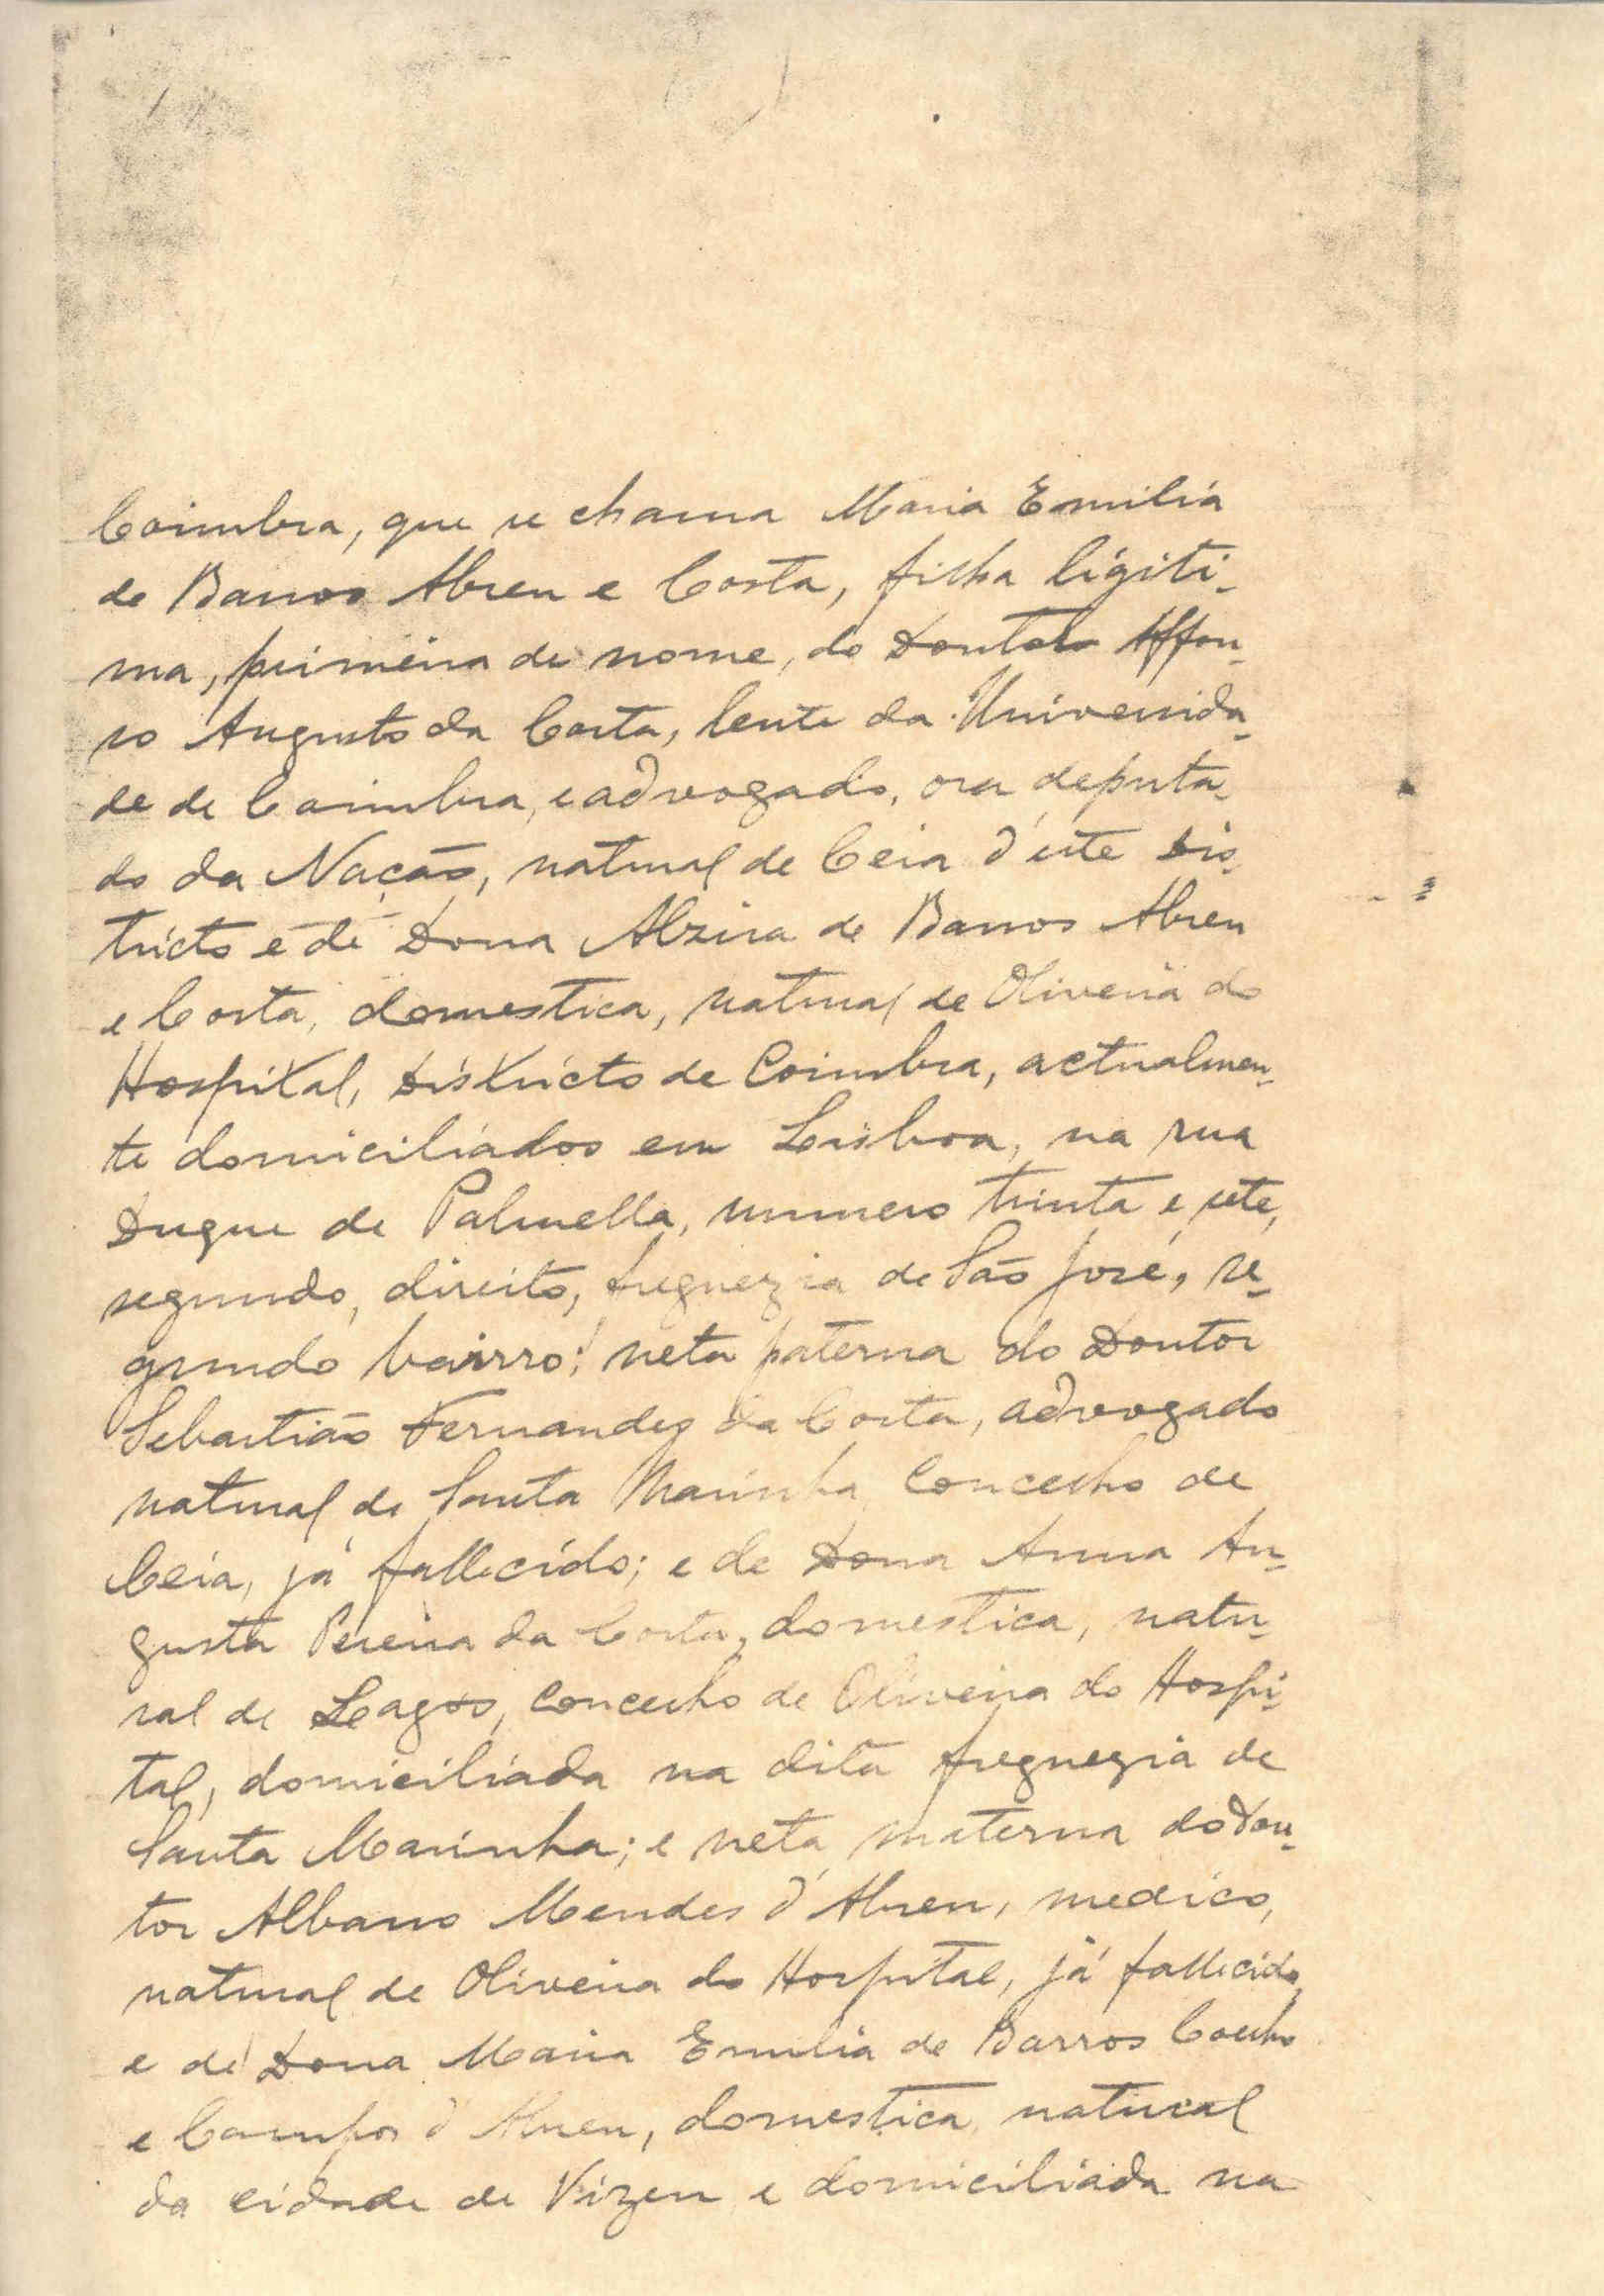 Coimbra, que se chama Maria Emilia
de Barros Abreu e Costa, filha ligiti-
ma, primeira de nome, do Doutor Affon-
so Augusto da Costa, lente da Universida-
de de Coimbra, e advogado, ora deputa-
do da Nação, natural de Ceia d'este dis-
tricto e de Dona Alzira de Barros Abreu
e Costa, domestica, natural de Oliveira do
Hospital, districto de Coimbra, actualmen-
te domiciliados em Lisboa, na rua
Duque de Palmella, numero trinta e sete,
segundo, direito, freguezia de São José, se-
gundo bairro; neta paterna do Doutor
Sebastião Fernandes da Costa, advogado
natural de Santa Marinha, concelho de
Ceia, já fallecido; e de Dona Anna Au-
gusta Pereira da Costa, domestica, natu-
ral de Lagos, concelho de Oliveira do Hospi-
tal, domiciliada na dita freguezia de
Santa Marinha; e neta materna do Dou-
tor Albano Mendes d'Abreu, medico,
natural de Oliveira do Hospital, já fallecido,
e de Dona Maria Emilia de Barros Coelho
e Campos d'Abreu, domestica, natural
da cidade de Vizeu e domiciliada na